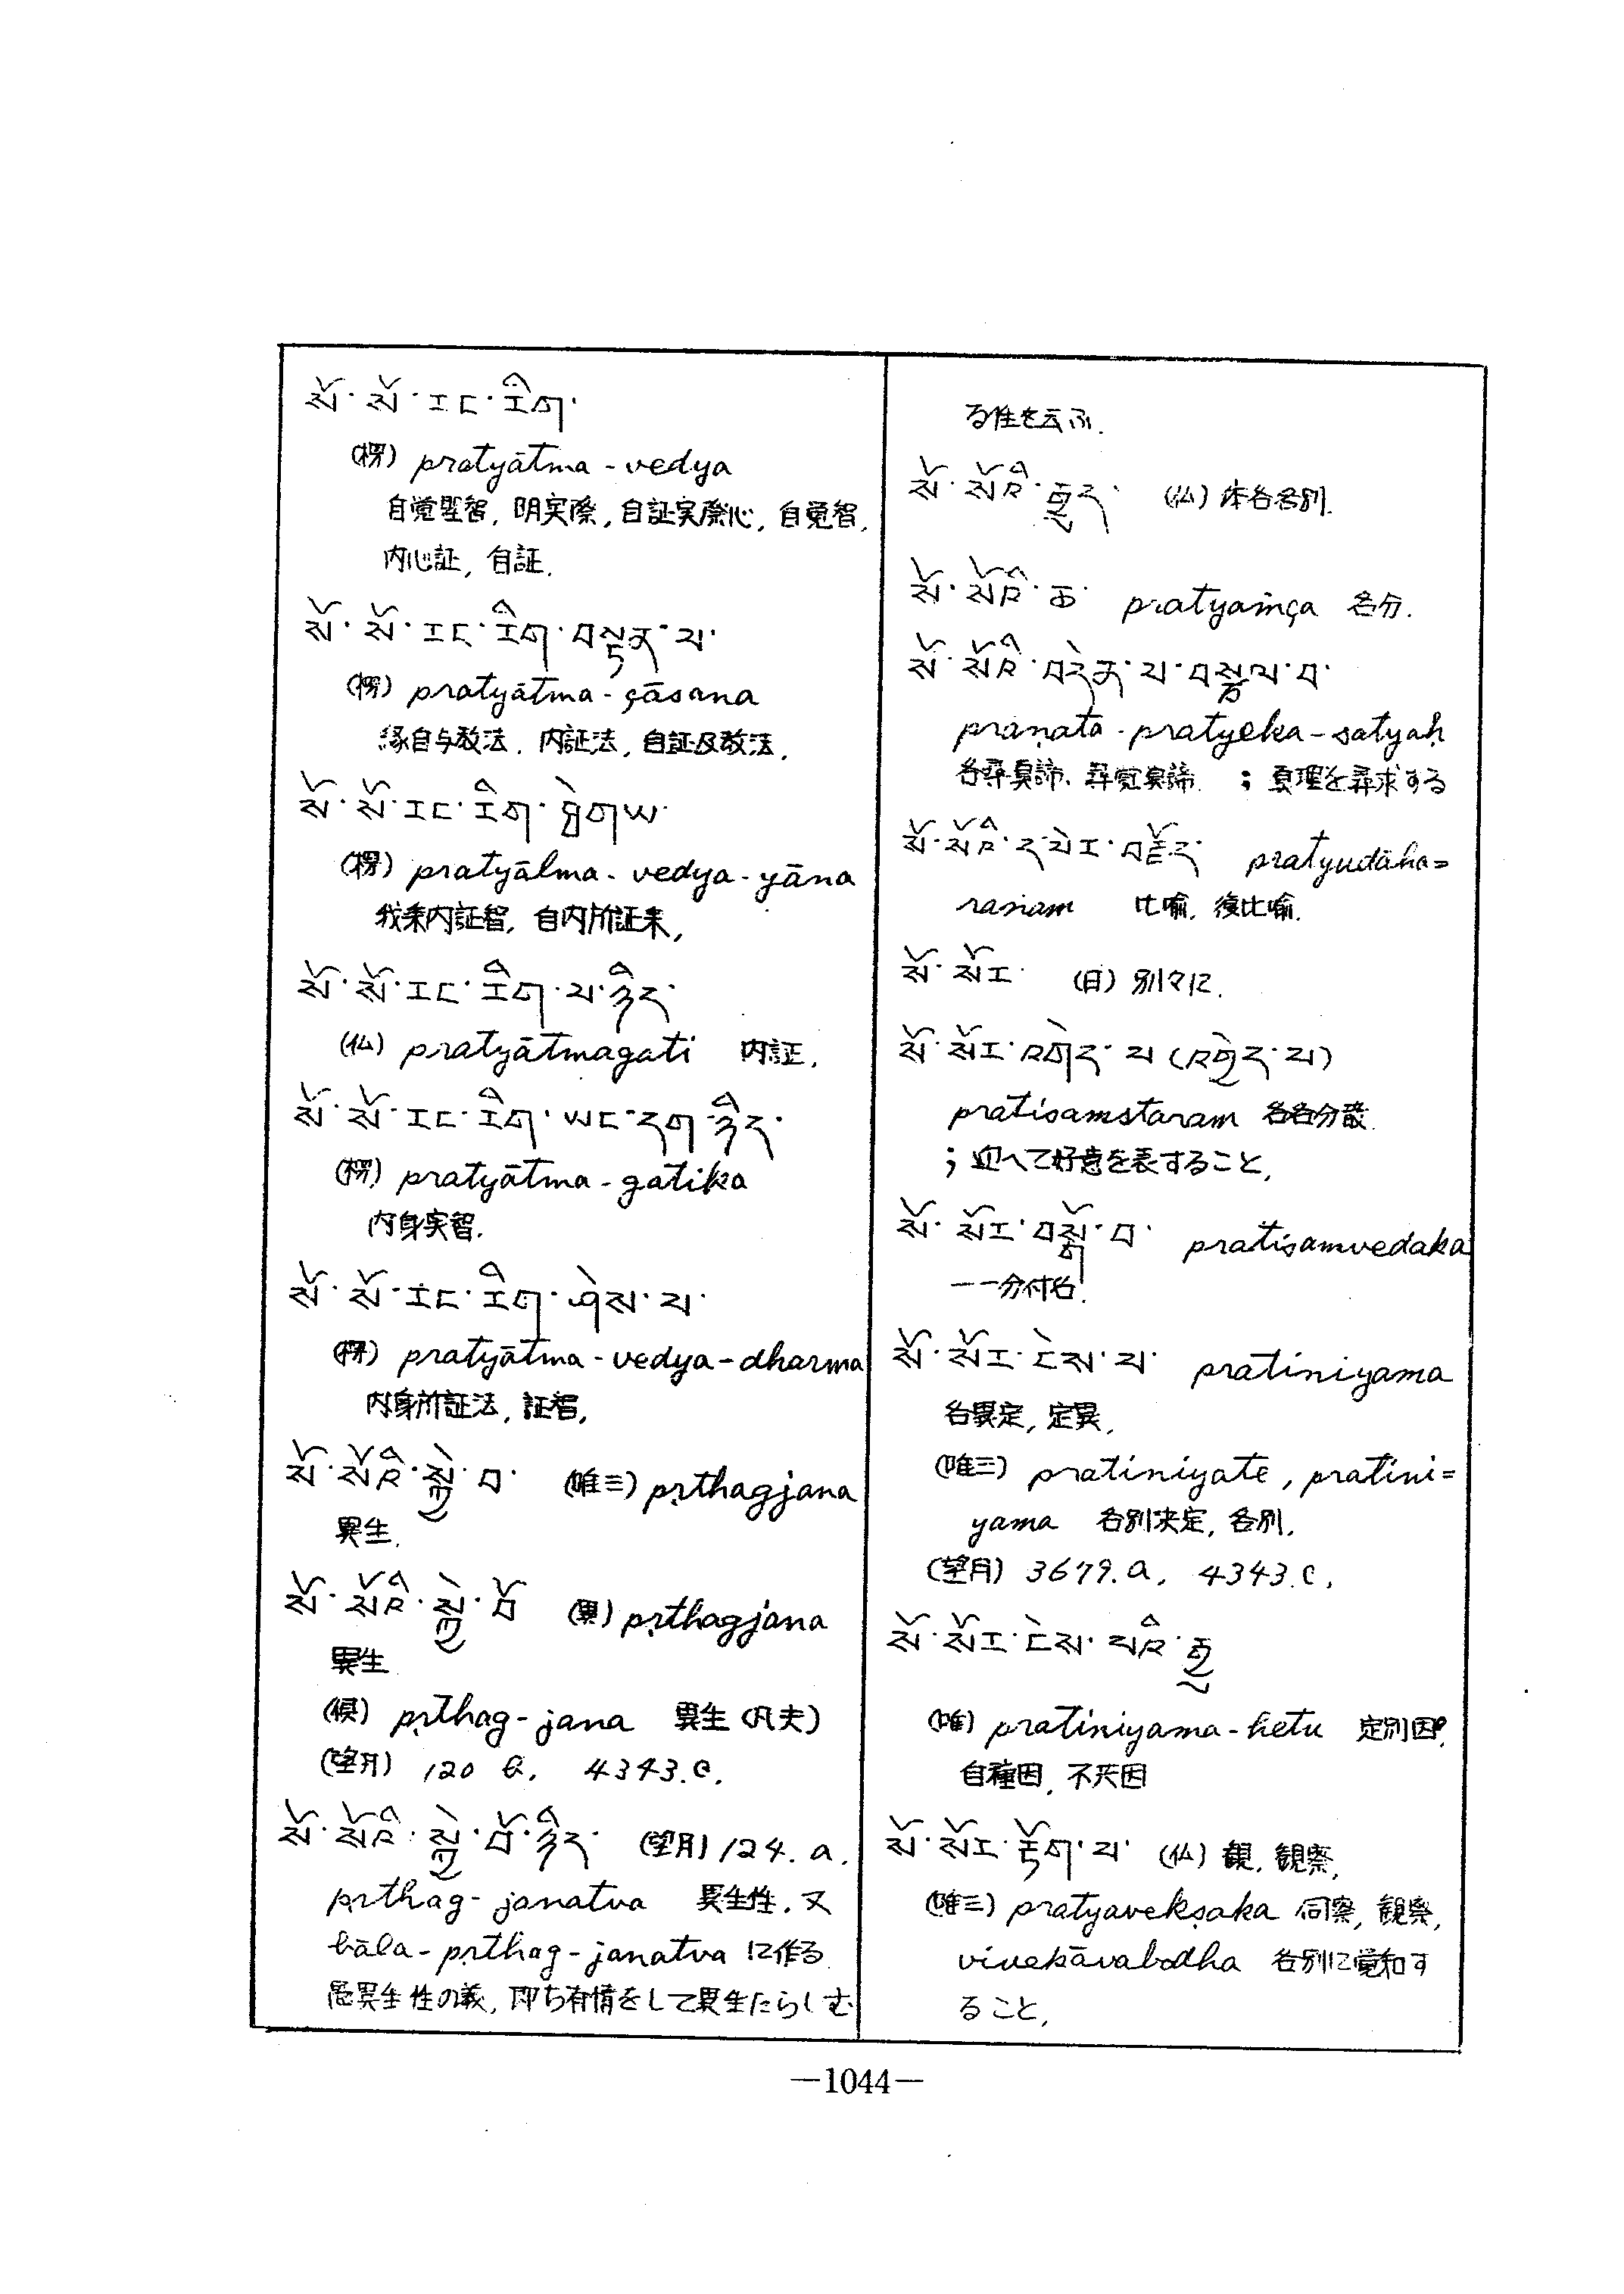 སོ་སོ་རང་རིག་
(楞) pratyātma-vedya
自覚聖智, 明実際, 自証実際心, 自覚智,
内心証, 自証.
སོ་སོ་རང་རིག་བསྟན་པ་
(楞) pratyātma-çāsana
縁自与教法, 内証法, 自証及教法,
སོ་སོ་རང་རིག་ཐེག་
(楞) pratyālma-vedya-yāna
我乗内証智, 自内所証来,
སོ་སོ་རང་རིག་པ་ཉིད་
(仏) pratyātmagati 内証,
སོ་སོ་རང་རིག་ཡང་དག་ཉིད་
(楞) pratyātma-gatika
内身実智.
སོ་སོ་རང་རིག་ཤེས་པ་
(楞) pratyātma-vedya-dharma
内身所証法, 証智,
སོ་སོའི་སྐྱེ་བ་ (唯三) pṛthagjana
異生.
སོ་སོའི་སྐྱེ་བོ (異) pṛthagjana
異生
pṛthag-jana 異生 (凡夫)
(望月) 120 4343.c,
སོ་སོའི་སྐྱེ་བོ་ཉིད་ (望月) 124. a.
pṛthag-janatva 異生性, 又
bāla-pṛthag-janatva に作る
愚異生性の義, 即ち有情をして異生たらしむ
る性を云ふ.
སོ་སོའི་ (仏) 各各別.
སོ་སོའི་ཆ་ pratyaṁça 各分.
སོ་སོའི་བདེན་པ་བསྩལ་བ་
praṇata-pratyeka-satyaḥ
各尋真諦, 尋覚真諦. ; 真理を尋求する
སོ་སོའི་ད་པེར་བརྗོད་ pratyudāha=
raṇam 比喩, 復比喩.
སོ་སོར་ (日) 別々に.
སོ་སོར་འགེད་པ (འགྱེད་པ)
pratisamstaram 各各分散.
; 迎へて好意を表すること,
སོ་སོར་བསྒོ་བ་ pratisamvedaka
一一分付名.
སོ་སོར་ངེས་པ་ pratiniyama
各異定, 定異,
(唯三) pratiniyate, pratini=
yama 各別決定, 各別,
(望月) 3679.a, 4343.c,
སོ་སོར་ངེས་པའི་རྒྱུ
(唯) pratiniyama-hetu 定別因,
自種因, 不共因
སོ་སོར་རྟོག་པ་ (仏) 観, 観察,
(唯三) pratyavekṣaka 伺察, 観察,
vivekāvabodha 各別に覚知す
ること,
—1044—